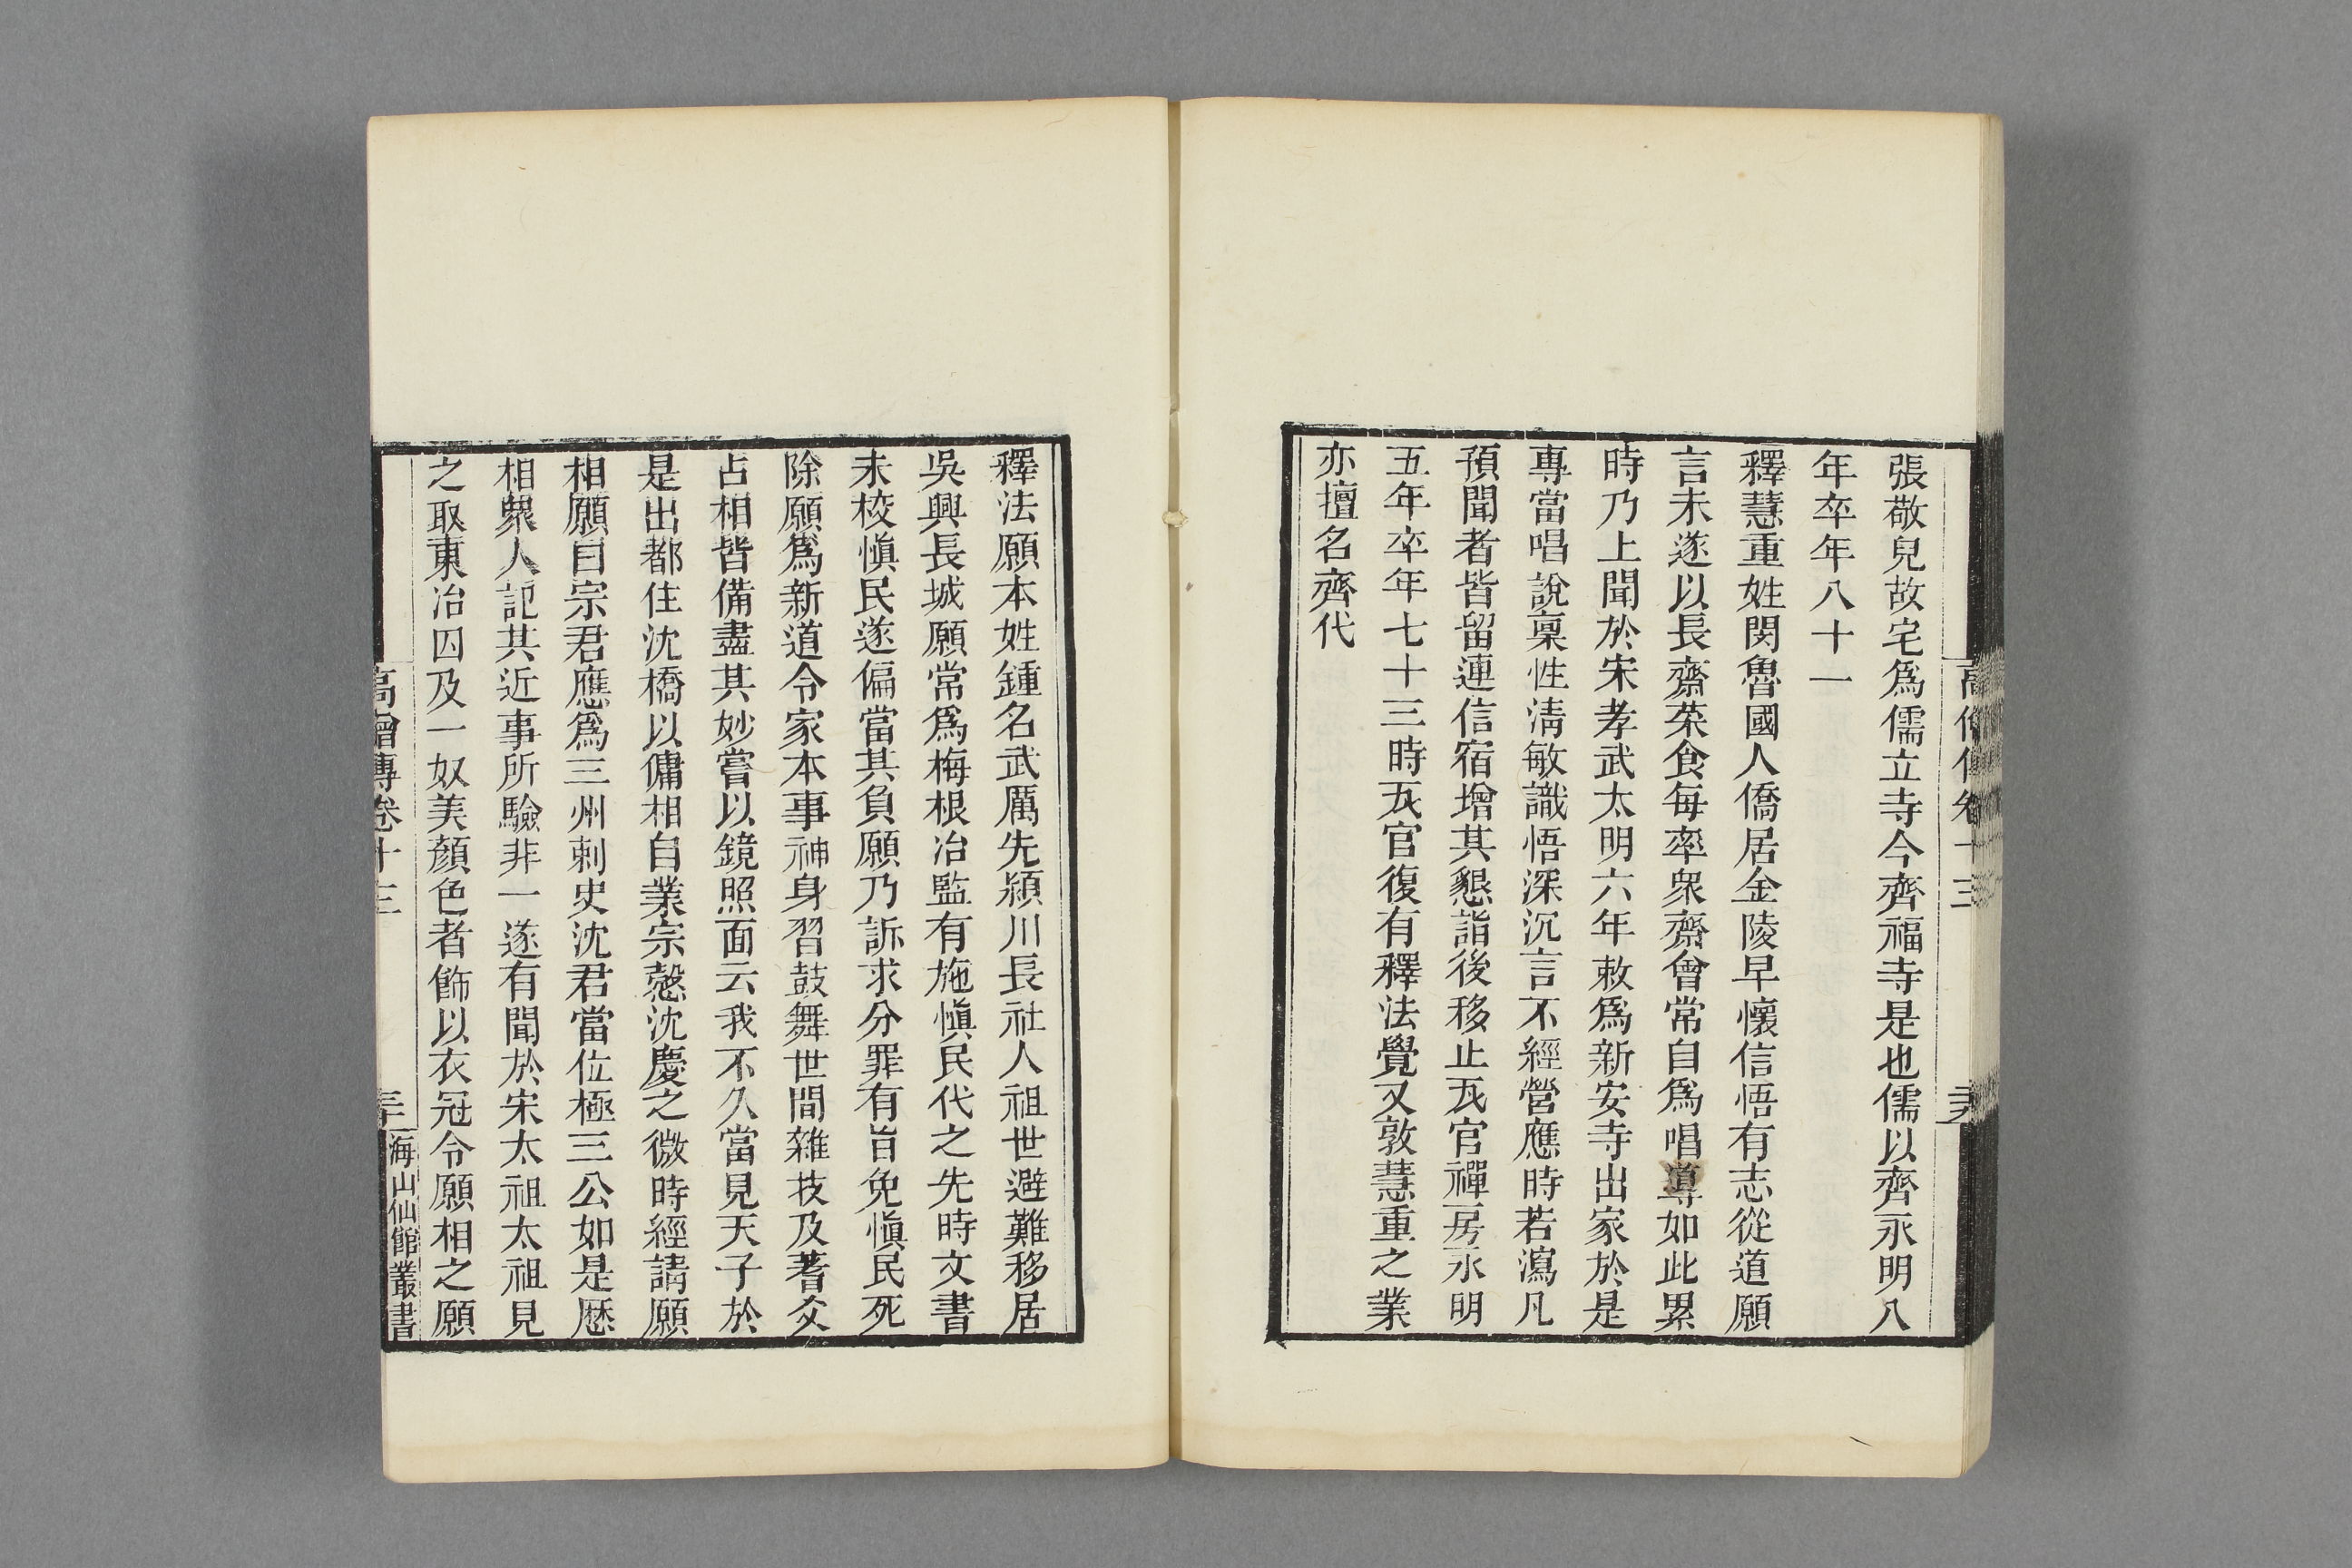 張敬兒故宅爲儒立寺今齊福寺是也儒以齊永明八
年卒年八十一
釋慧重姓閔魯國人僑居金陵早懷信悟有志從道願
言未遂以長齋菜食每率衆齋會常自爲唱導如此累
時乃上聞於宋孝武太明六年敕爲新安寺出家於是
專當唱說稟性淸敏識悟深沉言不經營應時若瀉凡
預聞者皆留連信宿增其懇詣後移止瓦官禪房永明
五年卒年七十三時瓦官復有釋法覺又敦慧重之業
亦擅名齊代
釋法願本姓鍾名武厲先潁川長社人祖世避難移居
吳興長城願常爲梅根冶監有施愼民代之先時文書
未校愼民遂偏當其負願乃訴求分罪有旨免愼民死
除願爲新道令家本事神身習鼓舞世間雜技及蓍爻
占相皆備盡其妙嘗以鏡照面云我不久當見天子於
是出都住沈橋以傭相自業宗慤沈慶之微時經請願
相願曰宗君應爲三州刺史沈君當位極三公如是歷
相衆人記其近事所驗非一遂有聞於宋太祖太祖見
之取東冶囚及一奴美顏色者飾以衣冠令願相之願
高僧傳卷十三
海山仙館叢書